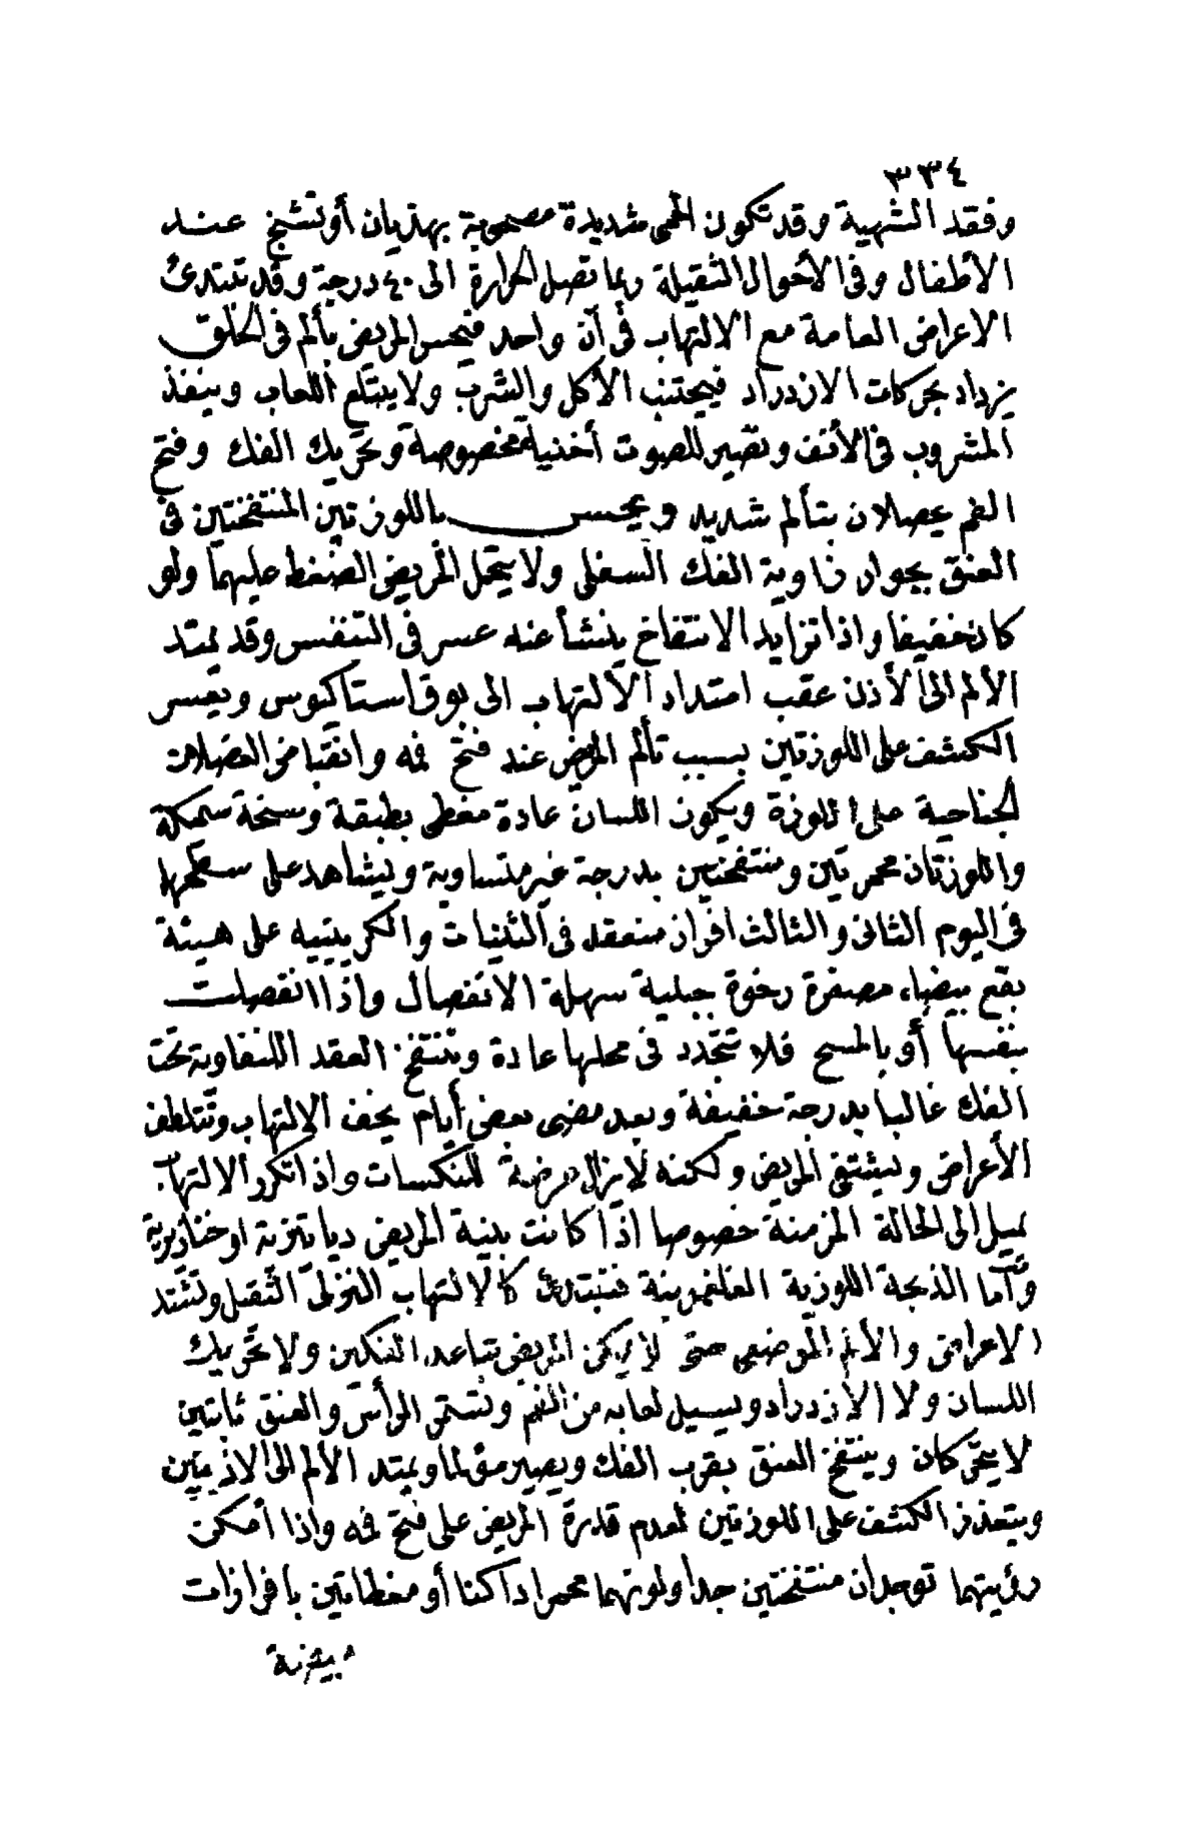 ٣٣٤
وفقد الشهية وقد تكون الحمى شديدة مصحوبة بهذيان أو تشنج عند
الأطفال وفى الأحوال الثقيلة ربما تصل الحرارة الى ٤٠ درجة وقد تبتدئ
الاعراض العامة مع الالتهاب فى آن واحد فيحس المريض بألم فى الحلق
يزداد بحركات الازدراد فيجتنب الأكل والشرب ولا يبتلع اللعاب وينفذ
المشروب فى الأنف وتصير للصوت أخنية مخصوصة وتحريك الفك وفتح
الفم يحصلان بتألم شديد ويحس باللوزتين المنتفختين فى
العنق بجوار زاوية الفك السفلى ولا يتحمل المريض الضغط عليهما ولو
كان خفيفا واذا تزايد الانتفاخ ينشأ عنه عسر فى التنفس وقد يمتد
الألم الى الأذن عقب امتداد الالتهاب الى بوق استاكيوس ويعسر
الكشف على اللوزتين بسبب تألم المريض عند فتح فمه وانقباض العضلات
الجناحية على اللوزة ويكون اللسان عادة مغطى بطبقة وسخة سميكة
واللوزتان محمرتين ومنتفختين بدرجة غير متساوية ويشاهد على سطحها
فى اليوم الثانى والثالث افراز منعقد فى الثنيات والكريبتيه على هيئة
بقع بيضاء مصفرة رخوة جبنية سهلة الانفصال واذا انفصلت
بنفسها أو بالمسح فلا تتجدد فى محلها عادة وتنتفخ العقد اللنفاوية تحت
الفك غالبا بدرجة خفيفة وبعد مضى بعض أيام يخف الالتهاب وتتلطف
الأعراض ويشتفى المريض ولكنه لا يزال عرضة للنكسات واذا تكرر الالتهاب
يميل الى الحالة المزمنة خصوصا اذا كانت بنية المريض دياتيزية او خنازيرية
وأما الذبحة اللوزية الفلغمونية فتبتدئ كالالتهاب النزلى الثقيل وتشتد
الاعراض والألم الموضعى حتى لا يمكن المريض تباعد الفكين ولا تحريك
اللسان ولا الازدراد ويسيل لعابه من الفم وتستمر الرأس والعنق ثابتين
لا يتحركان وينتفخ العنق بقرب الفك ويصير مؤلما ويمتد الألم الى الاذنين
ويتعذر الكشف على اللوزتين لعدم قدرة المريض على فتح فمه واذا أمكن
رؤيتهما توجدان منتفختين جدا ولونهما محمرا داكنا أو مغطاتين بافرازات